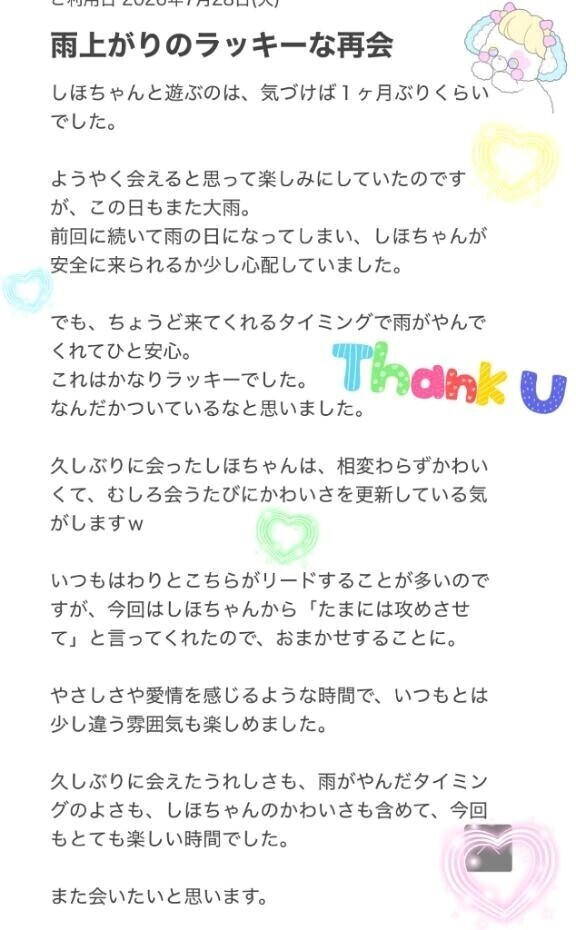 ご利用日 2026年7月28日(火)
雨上がりのラッキーな再会
しほちゃんと遊ぶのは、気づけば１ヶ月ぶりくらい
でした。
ようやく会えると思って楽しみにしていたのです
が、この日もまた大雨。
前回に続いて雨の日になってしまい、しほちゃんが
安全に来られるか少し心配していました。
でも、ちょうど来てくれるタイミングで雨がやんで
くれてひと安心。
これはかなりラッキーでした。
なんだかついているなと思いました。
Thank U
久しぶりに会ったしほちゃんは、相変わらずかわい
くて、むしろ会うたびにかわいさを更新している気
がしますｗ
いつもはわりとこちらがリードすることが多いので
すが、今回はしほちゃんから「たまには攻めさせ
て」と言ってくれたので、おまかせすることに。
やさしさや愛情を感じるような時間で、いつもとは
少し違う雰囲気も楽しめました。
久しぶりに会えたうれしさも、雨がやんだタイミン
グのよさも、しほちゃんのかわいさも含めて、今回
もとても楽しい時間でした。
また会いたいと思います。